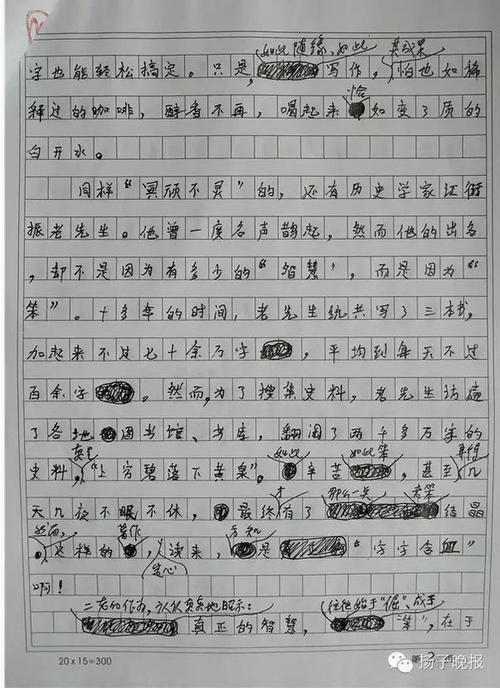 如此随缘，如此 其成果
字也能轻松搞定。只是，写作，怕也如稀
释过的咖啡，醇香不再，喝起来恰如变了质的
白开水。
同样“冥顽不灵”的，还有历史学家江衍
振老先生。他曾一度名声鹊起，然而他的出名
，却不是因为有多少的“智慧”，而是因为“
笨”。十多年的时间，老先生统共写了三本书，
加起来不过七十余万字，平均到每天不过
百余字。然而，为了搜集史料，老先生访遍
了各地图书馆、书库，翻阅了两千多万字的
史料，真是“上穷碧落下黄泉”。如此辛苦如此笨，甚至几
天几夜不眠不休，才最终有了那么一点结晶
然而，这样的著作，人读来，方知是“字字含血”
啊！
二老的作为，认认真真地昭示：
真正的智慧，往往始于“倔”、成于“笨”，在于
20×15=300
第2页
扬子晚报